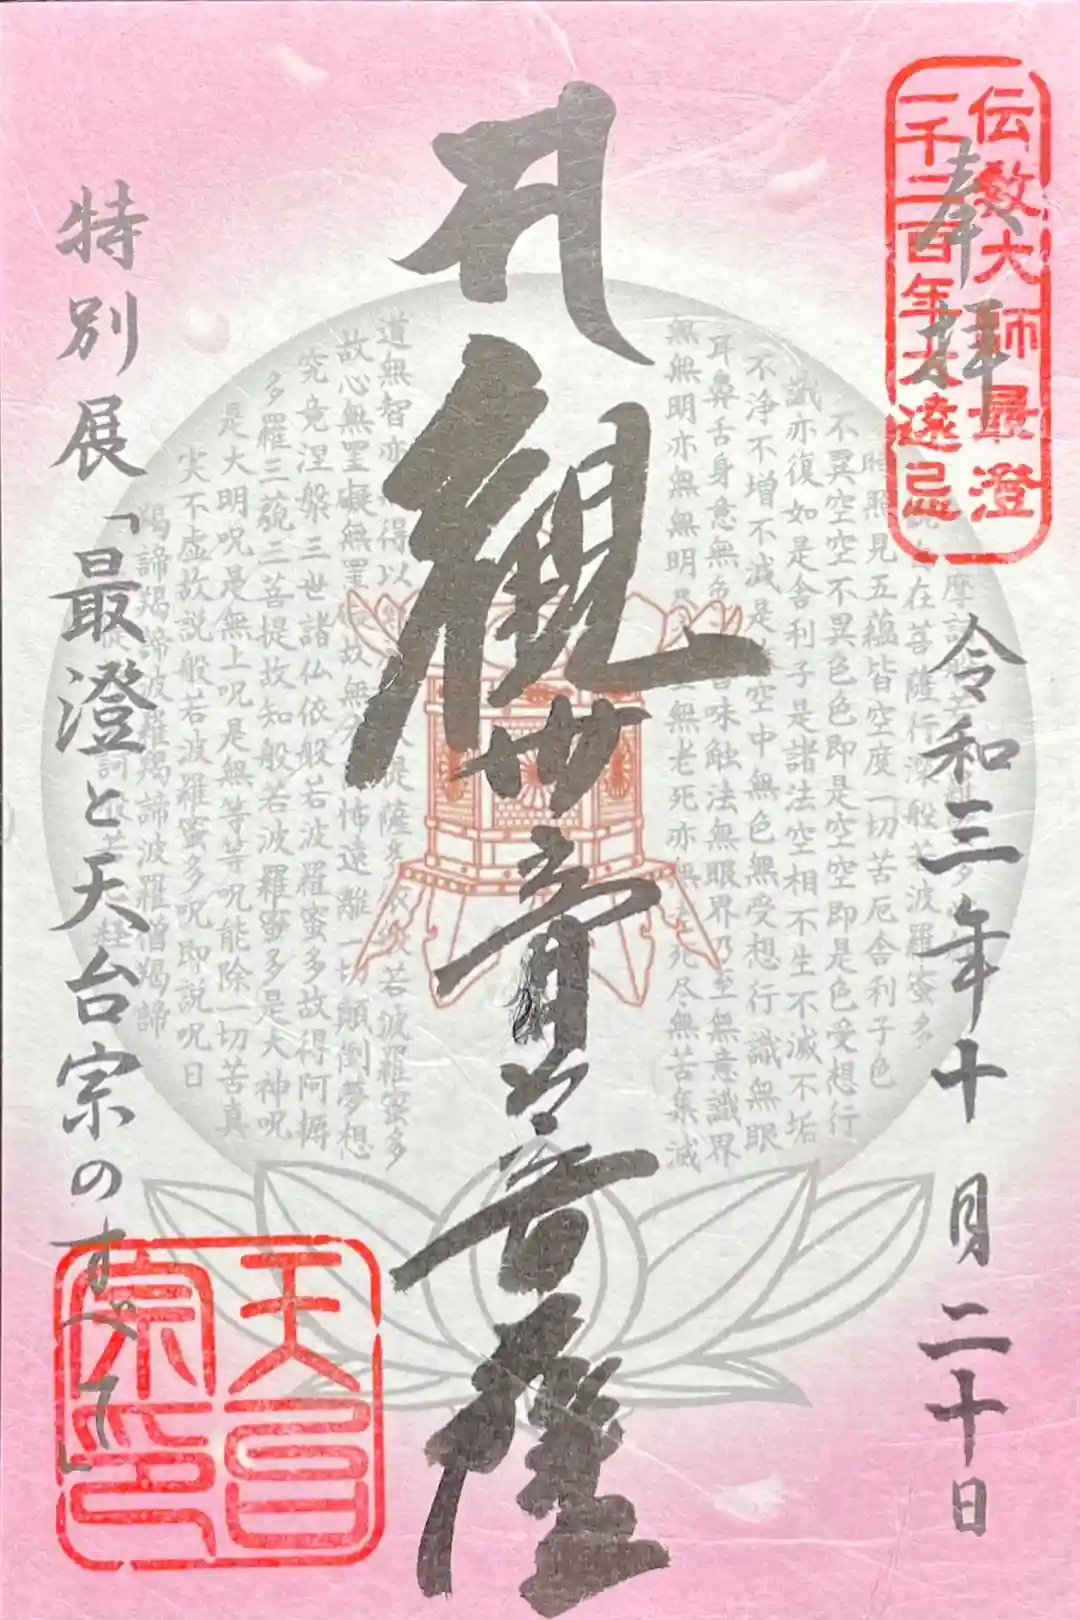 伝教大師最澄
一千二百年大遠忌
奉拝
令和三年十月二十日
觀世音菩薩
特別展「最澄と天台宗のすべて」
天台
宗印
在菩薩行深般若波羅蜜多
時照見五蘊皆空度一切苦厄舎利子色
不異空空不異色色即是空空即是色受想行
識亦復如是舎利子是諸法空相不生不滅不垢
不浄不増不減是空中無色無受想行識無眼
耳鼻舌身意無色香味触法無眼界乃至無意識界
無無明亦無無明無老死亦無老死尽無苦集滅
道無智亦得以是薩依般若波羅蜜多
故心無罣礙無罣礙故無怖遠離一切顛倒夢想
究竟涅槃三世諸仏依般若波羅蜜多故得阿耨
多羅三藐三菩提故知般若波羅蜜多是大神呪
是大明呪是無上呪是無等等呪能除一切苦真
実不虚故説般若波羅蜜多呪即説呪曰
羯諦羯諦波羅羯諦波羅僧羯諦